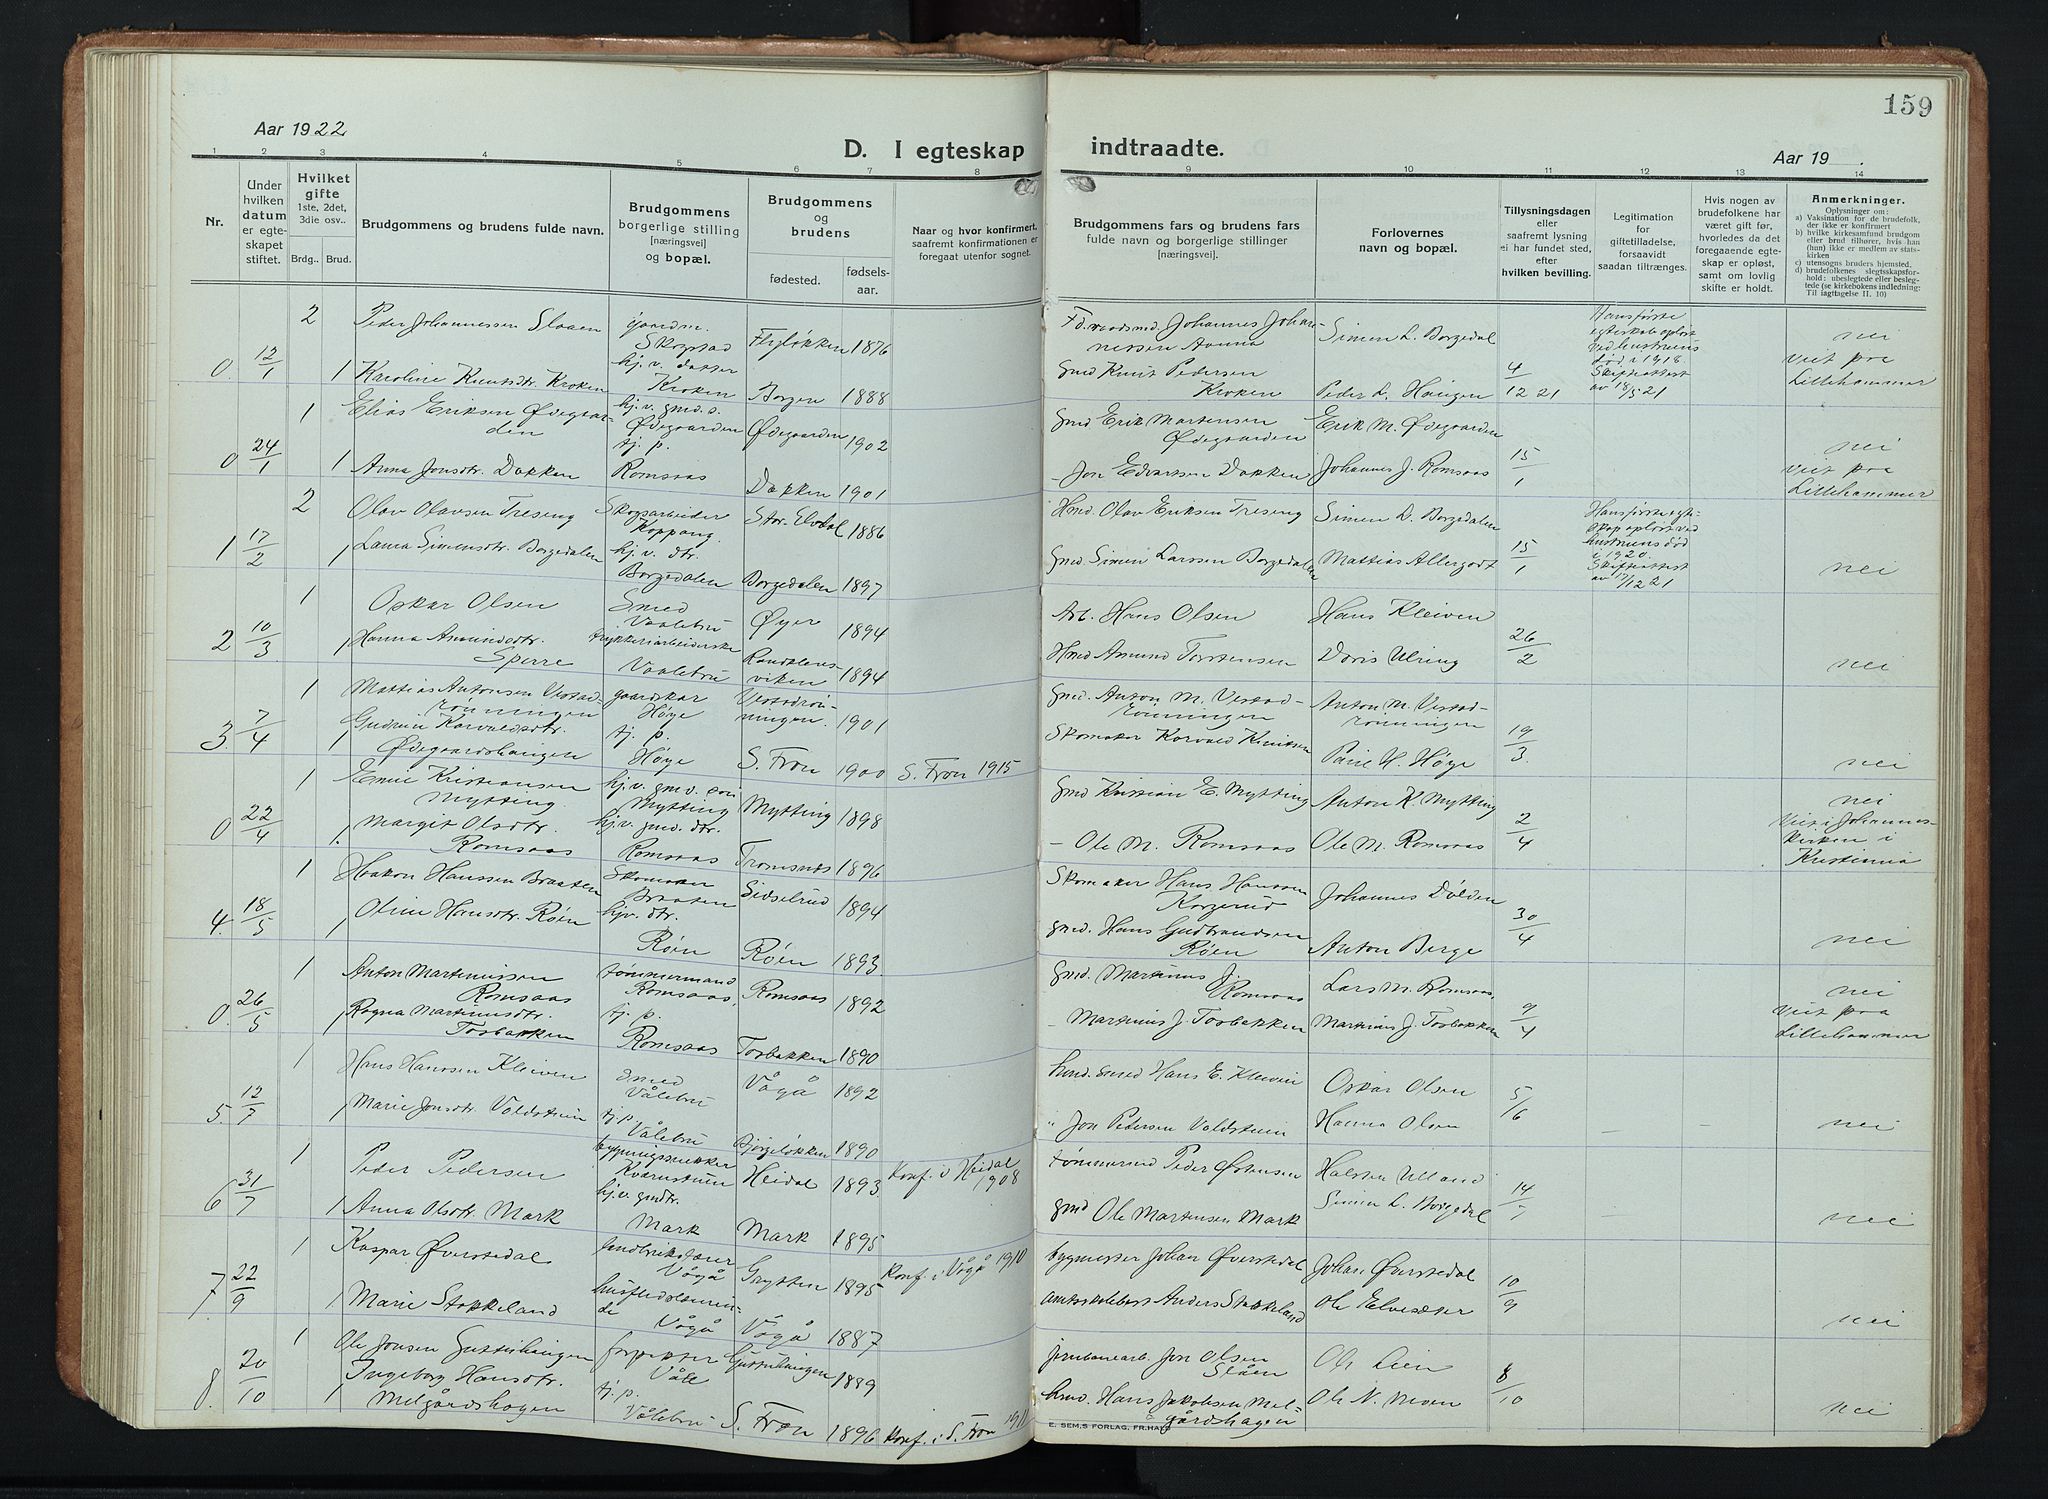 159
Aar 1922
D. I egteskap indtraadte.
Aar 19 .
1 2 3 4 5 6 7 8 9 10 11 12 13 14
Nr.
Under hvilken datum er egteskapet stiftet.
Hvilket gifte 1ste, 2det, 3die osv..
Brdg.. Brud.
Brudgommens og brudens fulde navn.
Brudgommens borgerlige stilling [næringsvei] og bopæl.
Brudgommens og brudens
fødested. fødsels-aar.
Naar og hvor konfirmert, saafremt konfirmationen er foregaat utenfor sognet.
Brudgommens fars og brudens fars fulde navn og borgerlige stillinger [næringsvei].
Forlovernes navn og bopæl.
Tillysningsdagen eller saafremt lysning ei har fundet sted, efter hvilken bevilling.
Legitimation for giftetilladelse, forsaavidt saadan tiltrænges.
Hvis nogen av brudefolkene har været gift før, hvorledes da det foregaaende egteskap er opløst, samt om lovlig skifte er holdt.
Anmerkninger.
Oplysninger om:
a) Vaksination for de brudefolk, der ikke er konfirmert
b) hvilke kirkesamfund brudgom eller brud tilhører, hvis han (hun) ikke er medlem av statskirken
c) utensogns bruders hjemsted.
d) brudefolkenes slegtsskapsforhold: ubeslegtede eller beslegtede (se kirkebokens indledning: Til iagttagelse II. 10)
0. 12/1
2 Peder Johannessen Slaaen gaardm. Skogstad 1876 Johannes Johannessen Simen L. Borgedal nei
1 Karoline Knutsdtr. Kroken hj. v. datter Kroken Borgen 1888 Gmd Knut Pedersen Kroken Peder L. Haugen 4/12 21 viet paa Lillehammer
Hans første egteskab opløst ved hustruens død i 1918. Skifteattest av 18/5 21
0 24/1
1 Elias Eriksen Ødegaarden hj. v. gmd. s. Ødegaarden Ødegaarden 1902 Gmd Erik Martensen Ødegaarden Erik M. Ødegaarden nei
1 Anna Jonsdtr. Dakken tj. p. Romsaas Dakken 1901 - Jon Edvartsen Dakken Johannes J. Romsaas 15/1 viet paa Lillehammer
1 17/2
2 Olav Olavsen Treseng Skogsarbeider Koppang Stor-Elvdal 1886 Hmd. Olav Eriksen Treseng Simen L. Borgedalen
1 Laura Simensdtr. Borgedalen hj. v. dtr. Borgedalen Borgedalen 1897 Gmd. Simen Larssen Borgedalen Mattias Allergodt 15/1 nei
Hans første egteskap opløst ved hustruens død i 1920. Skifteattest av 17/12 21
2 10/3
1 Oskar Olsen Smed Vaalebru Øyer 1894 Arb. Hans Olsen Hans Kleiven
1 Hanna Amundsdtr. Sperre trykkeriarbeiderske Vaalebru 1894 Hmd Amund Torstensen Doris Ulring 26/2 nei
3. 7/4
1 Mattias Antonsen Vestadrønningen gaardskar Høge Vestadrønningen. 1901 Gmd. Anton M. Vestadrønningen Anton M. Vestadrønningen
1 Gudrun Korvaldsdtr. Ødegaardshaugen tj. p. Høge S. Fron 1900 S. Fron 1915 Skomaker Korvald Knutsen H. Høge 19/3. nei
0 22/4
1 Emil Kristiansen Mytting. hj. v. gmd. son Mytting Mytting 1898 Gmd Kristian E. Mytting Anton K. Mytting nei
1. Margit Olsdtr. Romsaas hj. v. gmd. dtr. Romsaas Tromsnes 1896 - Ole M. Romsaas Ole M. Romsaas 2/4 Viet i Johanneskirken i Kristiania
4. 18/5
1 Haakon Hanssen Braaten Skomaker Braaten Sidselrud 1894 Skomaker Hans Hanssen Johannes Dølden
1 Oline Hansdtr. Røen hj. v. dtr. Røen Røen 1893 gmd. Hans Gudbrandsen Røen Anton Berge 30/4 nei
0. 26/5
1 Anton Martinussen Romsaas tømmermand Romsaas, Romsaas 1892 Gmd. Martinus J. Romsaas Lars M. Romsaas, nei
1 Ragna Martinusdtr. Torbakken tj. p. Romsaas Torbakken 1890 - Martinus J. Torbakken Martinus J. Torbakken 9/4 Viet paa Lillehammer
5. 12/7
1 Hans Hanssen Kleiven Smed Vålebru Vågå 1892 smed Hans E. Kleiven Oskar Olsen
1 Marie Jonsdtr. Voldstuen tj. p. Vålebru 1890 " Jon Pedersen Voldstuen Hanna Olsen 5/6 nei
6 31/7
1 Peder Pedersen bygningssnekker Heidal 1893 Konf. i Heidal 1908 tømmermd Peder Halsten Ulland
1 Anna Olsdtr. Mark hj. v. gmdtr. Mark Mark 1895 gmd Ole Martensen Mark Simen L. Borgedal 14/7 nei
7 22/9
1 Kaspar Øverstedal landbrukslærer Vågå Grytten 1895 Konf. i Vågå 1910 bygmester Johan Øverstedal Johan Øverstedal
1 Marie Stokkeland husflidslærerinde Vågå Vågå 1887 amtsskolebest Anders Stokkeland Ole Elvesæter 10/9 nei
8. 20/10
1 Ole Jonsen Guttuhaugen forpakter Våle Guttuhaugen 1889 jernbanearb. Jon Olsen Slåen Ole Lien
1 Ingeborg Hansdtr. Melgårdshagen tj. p. Vålebru S. Fron 1896 Konf. i S. Fron Hans Jakobsen Melgårdshagen Ole N. Moen 8/10 nei
E. SEM,S FORLAG, FR.HALD